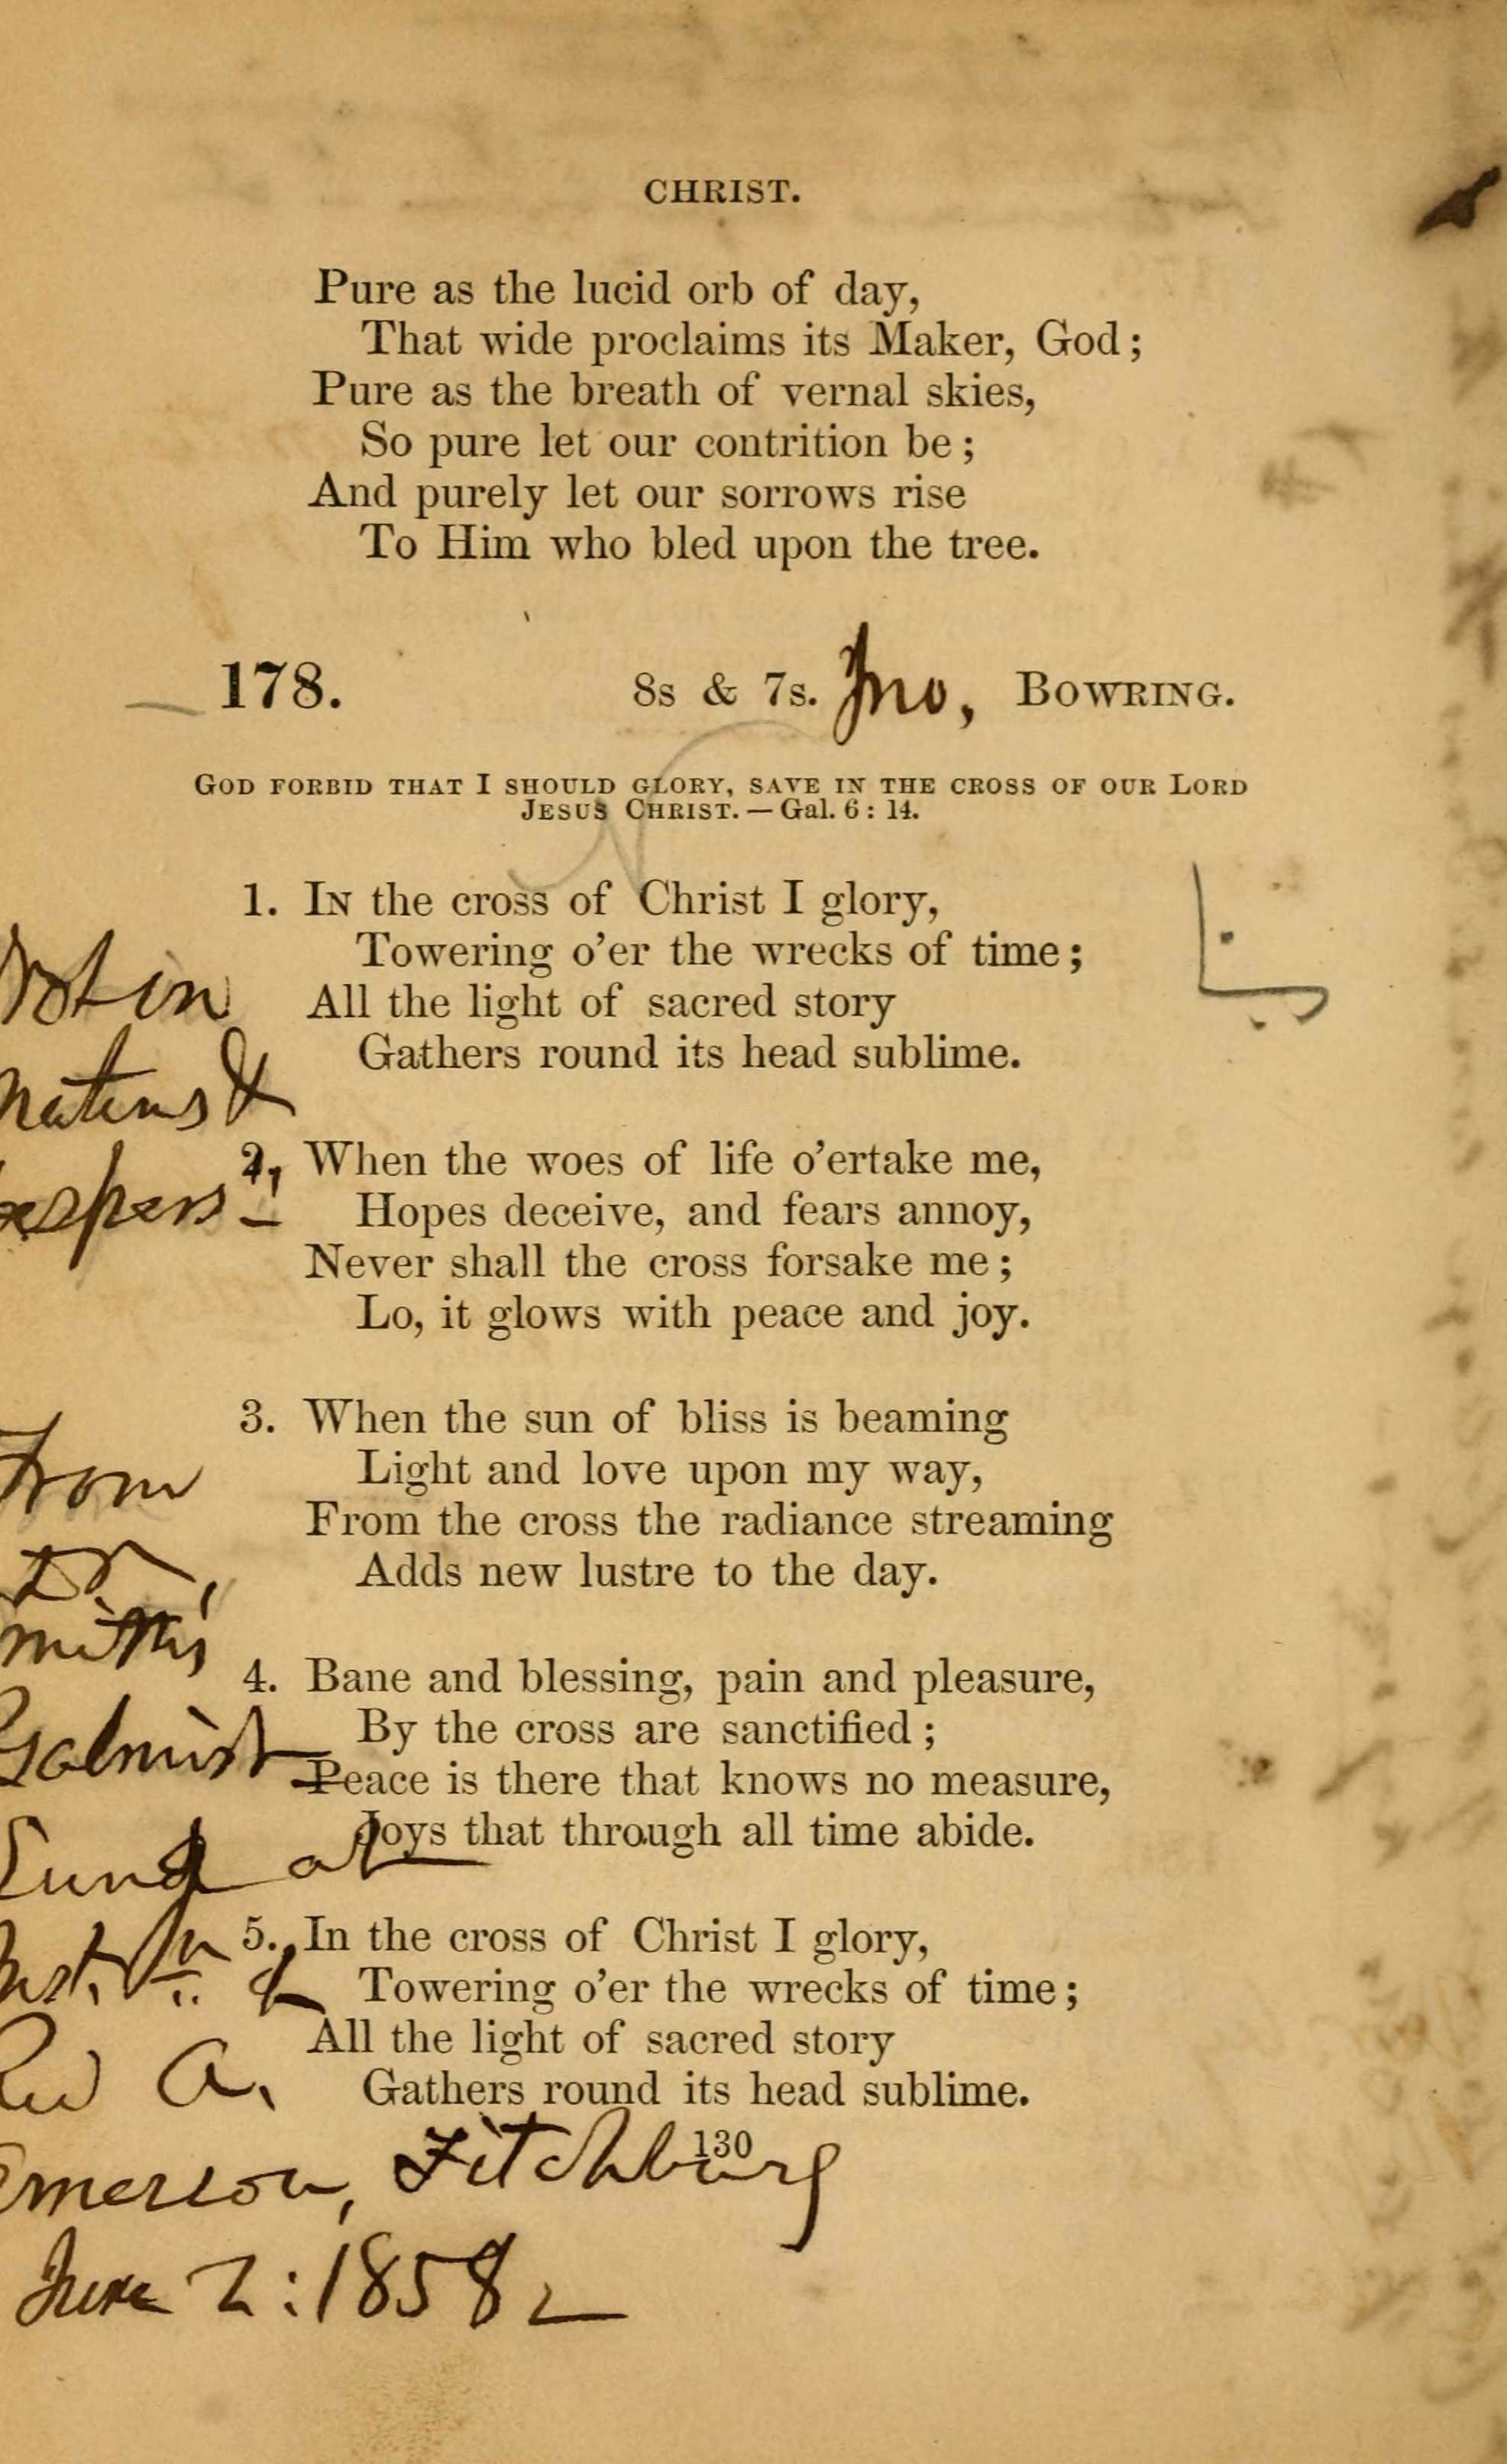 CHRIST.
Pure as the lucid orb of day,
That wide proclaims its Maker, God;
Pure as the breath of vernal skies,
So pure let our contrition be;
And purely let our sorrows rise
To Him who bled upon the tree.
178. 8s & 7s. Jno, BOWRING.
GOD FORBID THAT I SHOULD GLORY, SAVE IN THE CROSS OF OUR LORD
JESUS CHRIST. — Gal. 6 : 14.
1. IN the cross of Christ I glory,
Towering o'er the wrecks of time;
All the light of sacred story
Gathers round its head sublime.
Not in
matins &
espers
2, When the woes of life o'ertake me,
Hopes deceive, and fears annoy,
Never shall the cross forsake me;
Lo, it glows with peace and joy.
3. When the sun of bliss is beaming
Light and love upon my way,
From the cross the radiance streaming
Adds new lustre to the day.
From
miths
salmist
4. Bane and blessing, pain and pleasure,
By the cross are sanctified;
Peace is there that knows no measure,
Joys that through all time abide.
Sung at
5. In the cross of Christ I glory,
Towering o'er the wrecks of time;
All the light of sacred story
Gathers round its head sublime.
130
A.
Emerson, Fitchburg
June 2: 1858